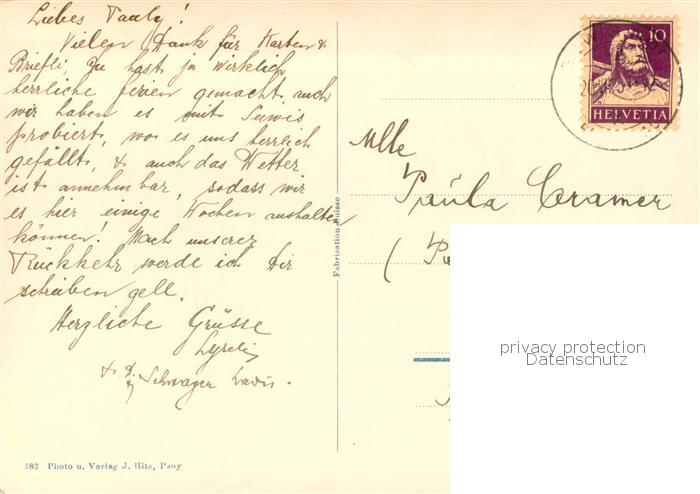 Liebes Pauly!
Vielen Dank für Karten &
Briefli, Du hast ja wirklich
herrliche ferien gemacht, auch
wir haben es mit Seewis
probiert, wo es uns herrlich
gefällt, & auch das Wetter
ist annehmbar, sodass wir
es hier einige Wochen aushalten
können! Nach unserer
Rückkehr werde ich Dir
schreiben gell.
Herzliche Grüsse
Schwager
382 Photo u. Verlag J. Hitz, Pany
Fabrication Suisse
10
HELVETIA
Mlle
Paula Cramer
privacy protection
Datenschutz